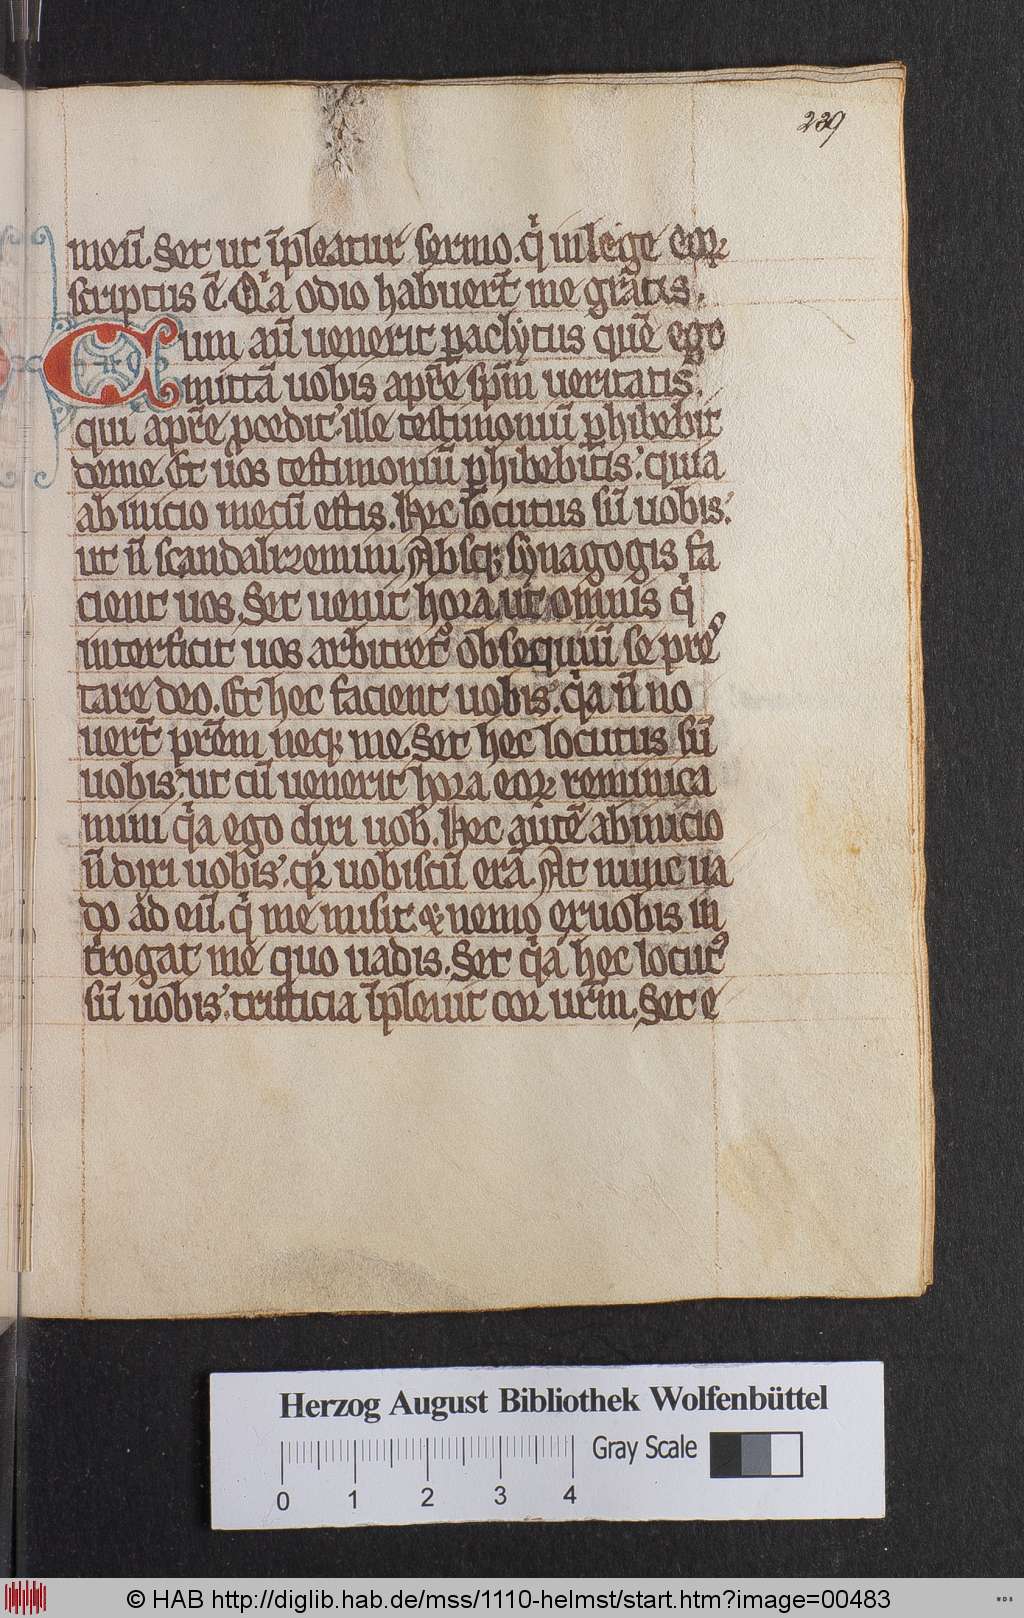 239
meū. Set ut īpleatur sermo. qͥ in lege eoꝝ
scriptus ē. Qͥa odio habuer̄t me gratis.
Cum aū uenerit ꝑaclytus quē ego
mittā uobis apr̄e sp̄m ueritatis.
qui apr̄e ꝓcedit. ille testimoniū ꝑhibebit
deme. Et uos testimoniū ꝑhibebitis. quia
abinicio mecū estis. Hec locutus sū uobis.
ut n̄ scandalizemini. Absqꝫ synagogis fa
cient uos. Set uenit hora ut omnis qͥ
interficit uos arbitretꝰ obsequiū se pres
tare deo. Et hec facient uobis. qͥa n̄ no
uer̄t pr̄em neqꝫ me. Set hec locutus sū
uobis. ut cū uenerit hora eoꝝ reminisca
mini qͥa ego dixi uob̄. Hec autē abinicio
n̄ dixi uobis. qꝛ uobiscū erā. At nunc ua
do ad eū. qͥ me misit. & nemo exuobis in
t̄rogat me quo uadis. Set qͥa hec locutꝰ
sū uobis. tristicia īpleuit cor ur̄m. Set e
Herzog August Bibliothek Wolfenbüttel
Gray Scale
0 1 2 3 4
© HAB http://diglib.hab.de/mss/1110-helmst/start.htm?image=00483